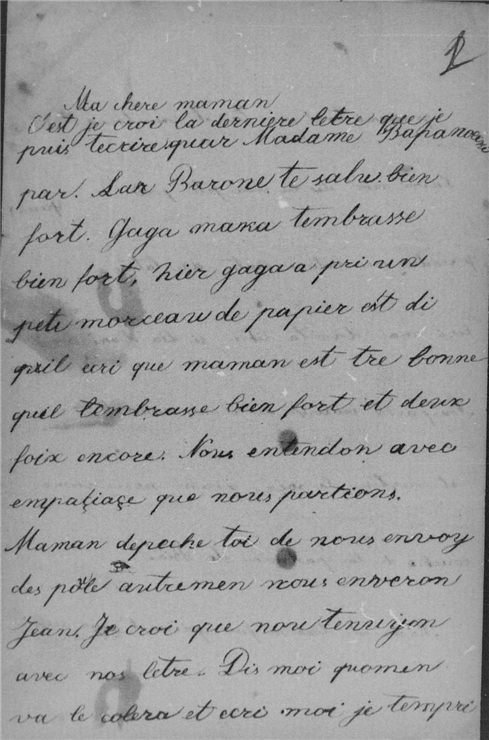 1
Ma chere maman
C'est je croi la derniere letre que je
puis tecrire quar Madame
par. Lar Barone te salu bien
fort. Gaga maka tembrasse
bien fort, hier gaga a pri un
peti morceau de papier est di
quil ecri que maman est tre bonne
quil tembrasse bien fort et deux
foix encore. Nous entendon avec
empaçiaçe que nous partions.
Maman depeche toi de nous envoy
des pôle autremen nous enveron
Jean. Je croi que nou tenuijon
avec nos letre. Dis moi quomen
va le colera et ecri moi je tempri